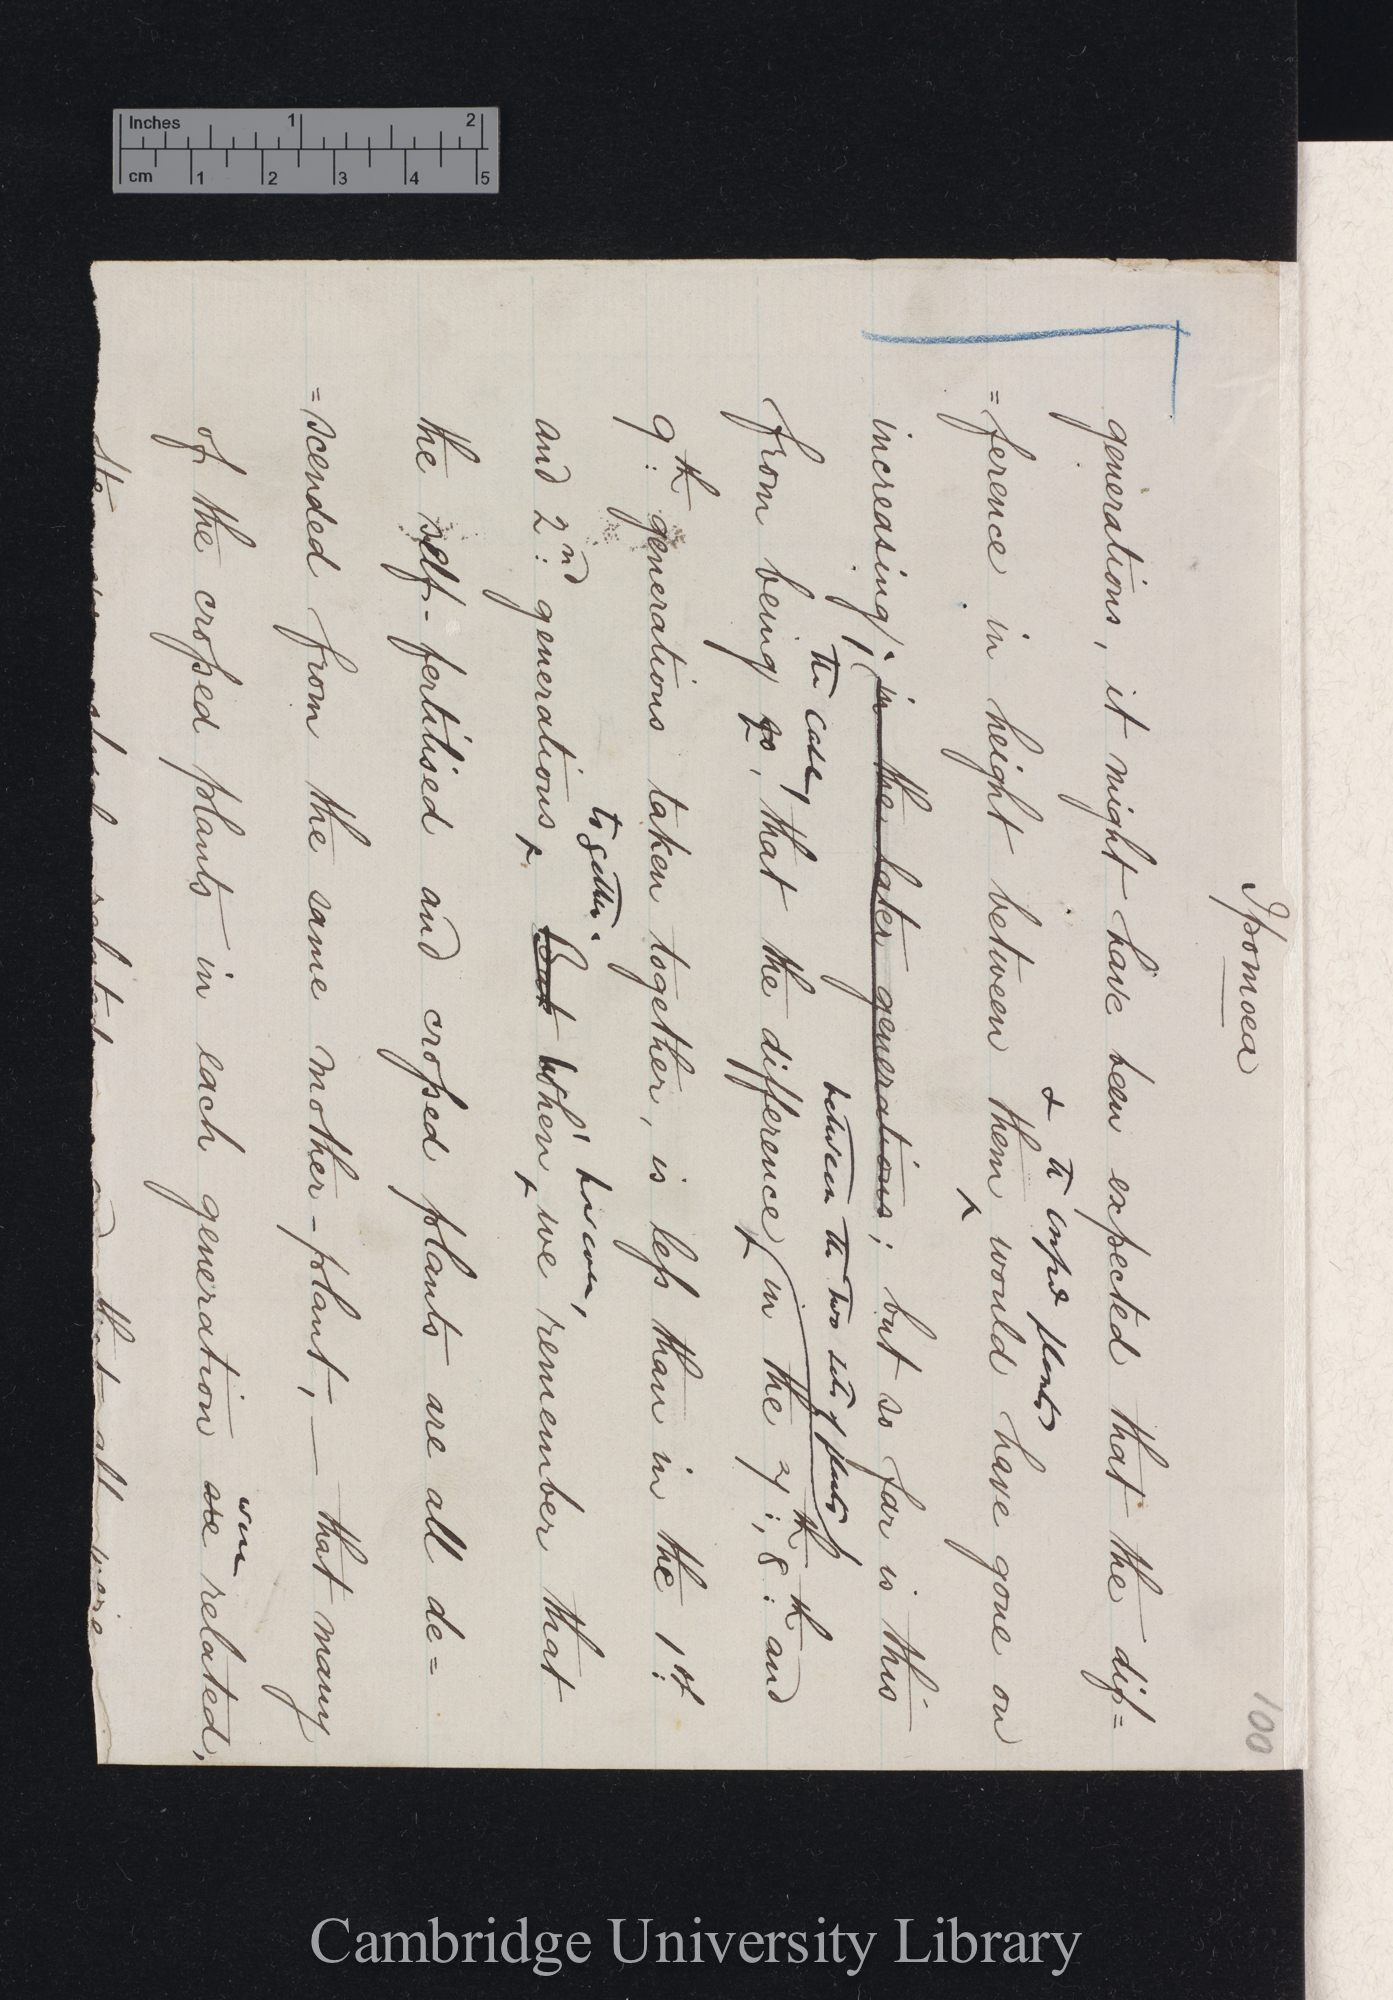 Inches 1 2
cm 1 2 3 4 5
100
Ipomoea
generations, it might have been expected that the dif=
& the crossed plants
=ference in height between them would have gone on
increasing; in the later generations; but so far is this
the case, between the two sets of plants
from being so, that the difference in the 7th, 8th and
9th generations taken together, is less than in the 1st
together.
and 2nd generations, But When, we remember that
however,
the self-fertilised and crossed plants are all de=
=scended from the same mother-plant, — that many
of the crossed plants in each generation are related,
were
related and that all were
Cambridge University Library